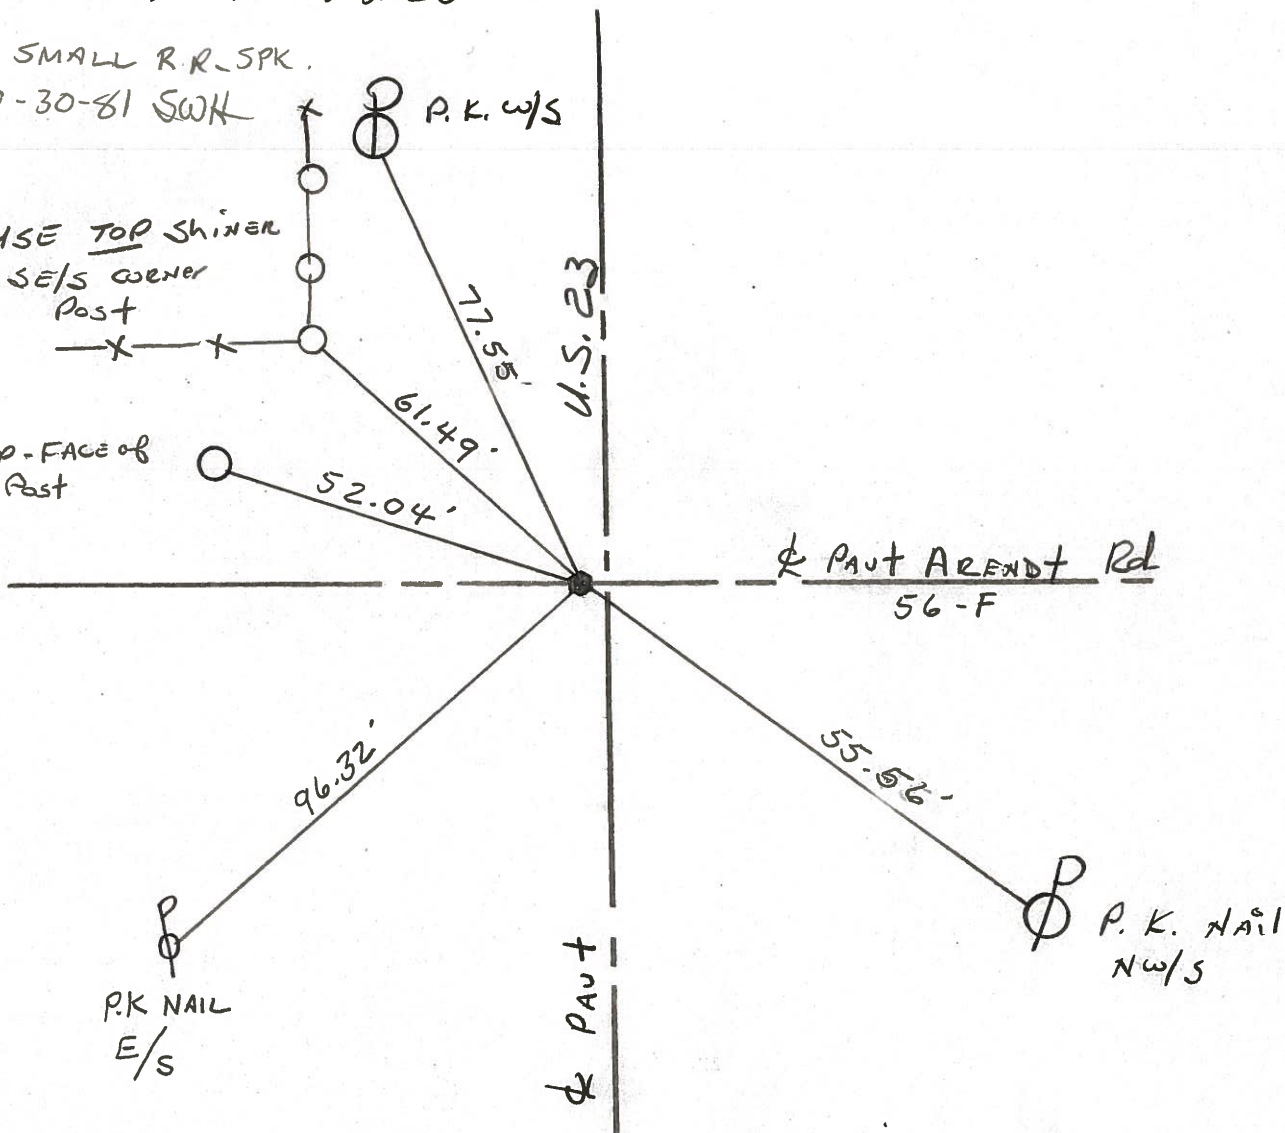 SMALL R.R. SPK.
-30-81 SWH
P. K. W/S
USE TOP ShiNER
SE/S CORNER
Post
77.55'
U.S. 23
61.49'
-FACE of
Post
52.04'
℄ PAVt ARENDt Rd
56-F
96.32'
55.56'
P. K. NAil
NW/S
P.K NAIL
E/S
℄ PAVt